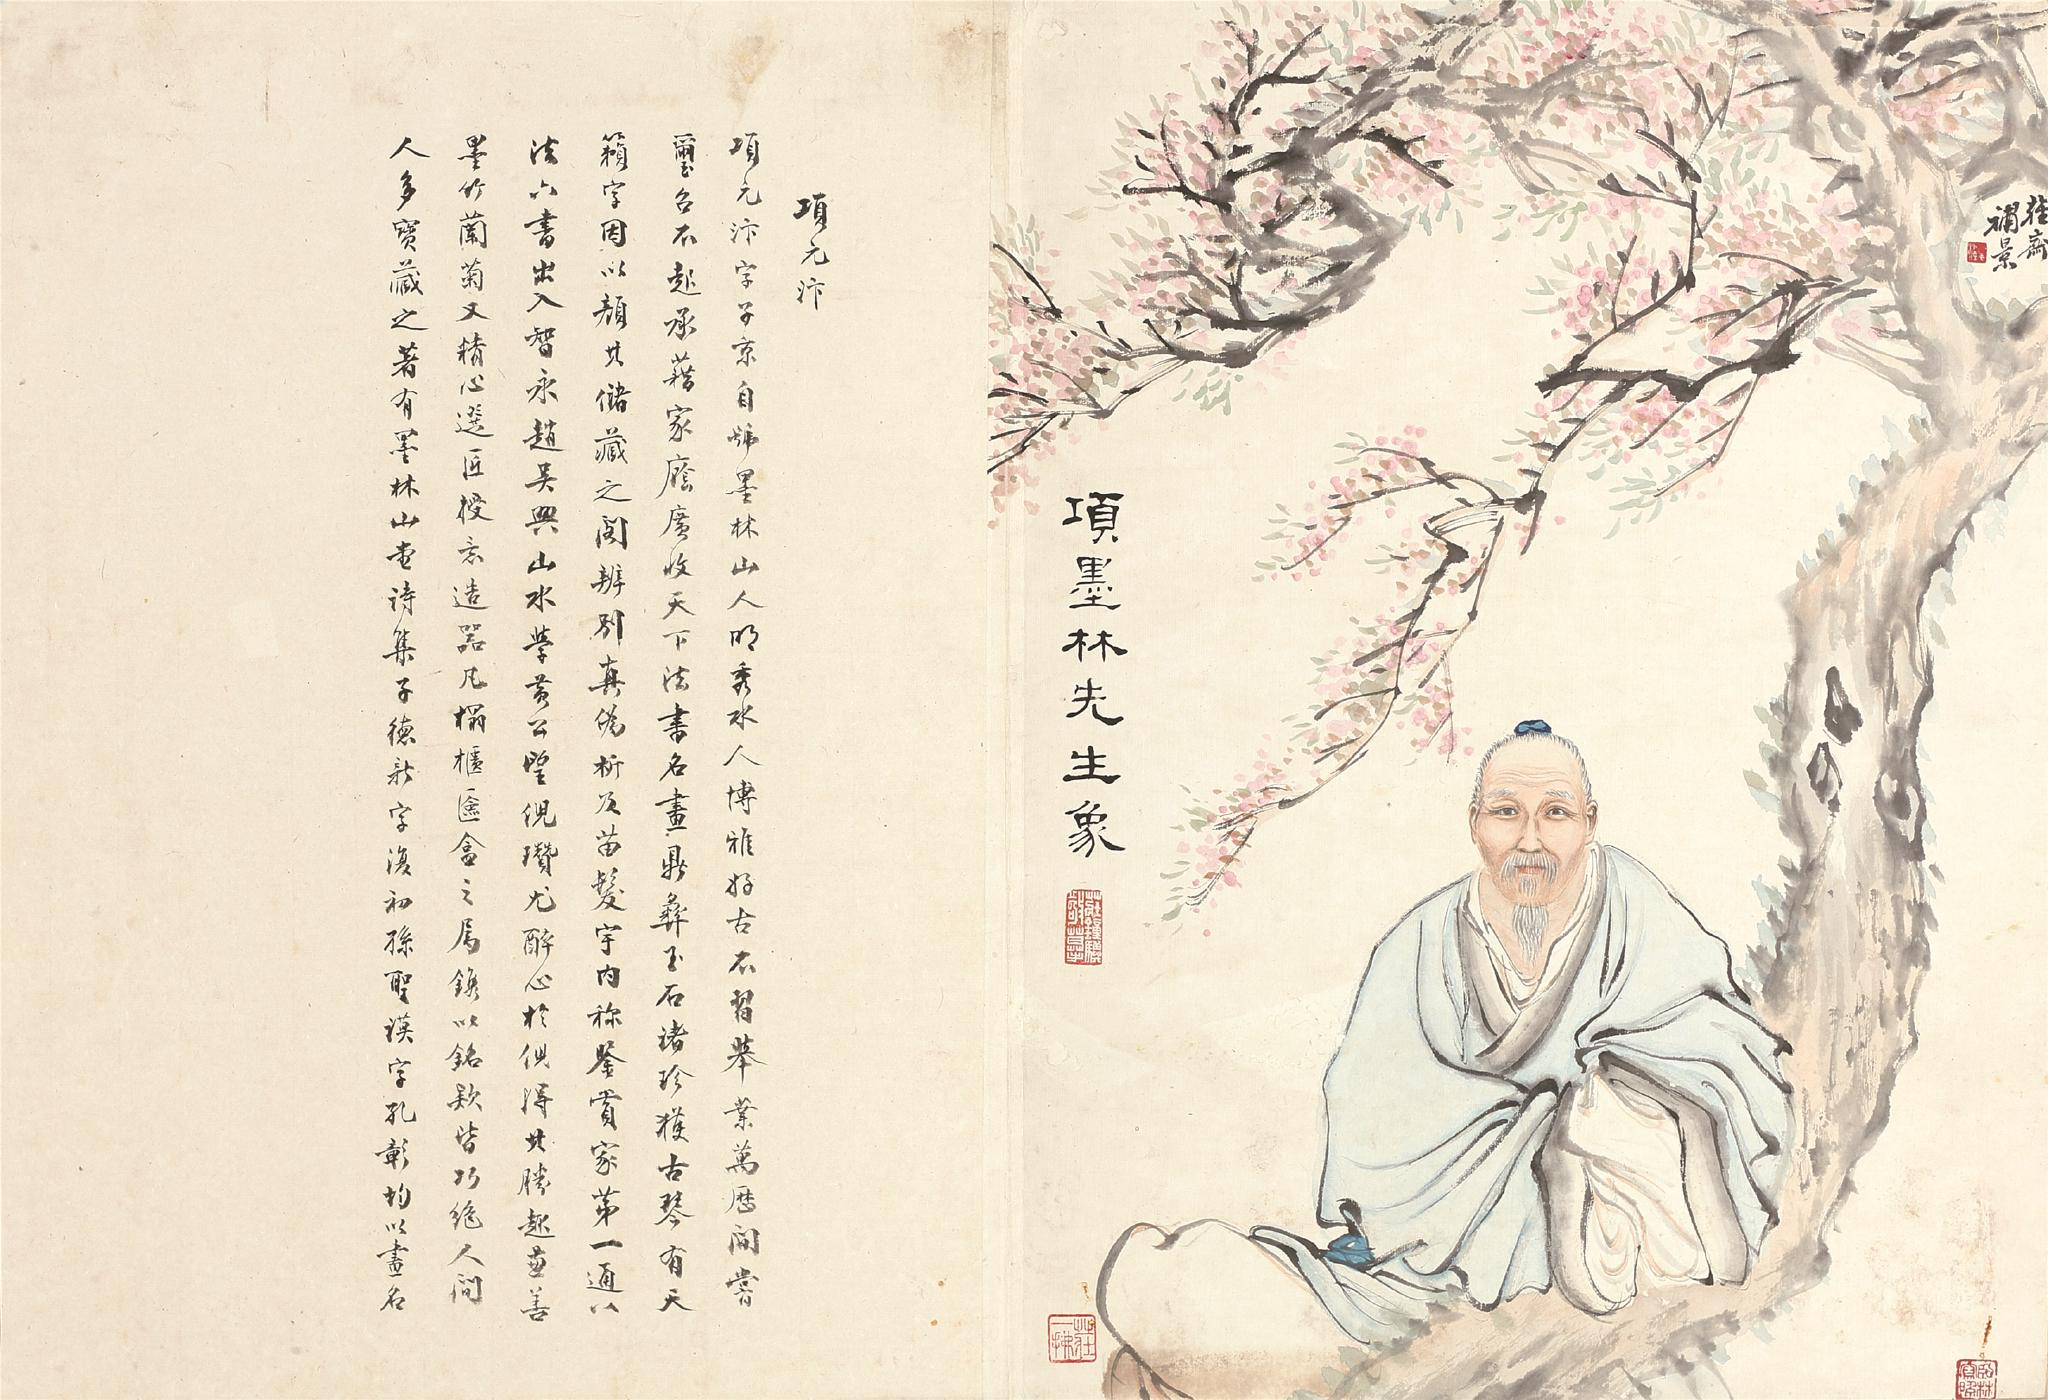 補景
項墨林先生象
莊一拂
項元汴
項元汴字子京自號墨林山人明秀水人博雅好古不習舉業萬歷間嘗
璽召不起承藉家廕廣收天下法書名畫鼎彝玉石諸珍獲古琴有天
籟字因以顏其儲藏之閣辨別真偽析及苗髮宇內称鑒賞家第一通八
法六書出入智永趙吳興山水學黃公望倪瓚尤醉心於倪得其勝趣兼善
墨竹蘭菊又精心選匠授意造器凡榻櫃匳盒之屬鐫以銘款皆巧絕人間
人多寶藏之著有墨林山堂詩集子德新字復初孫聖謨字孔彰均以畫名